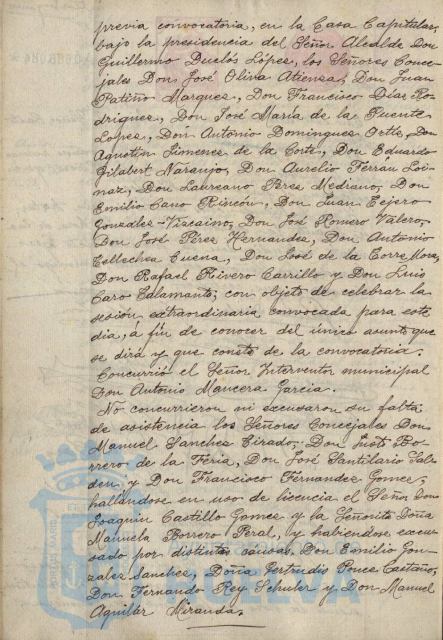 previa convocatoria, en la Casa Capitular,
bajo la presidencia del Señor Alcalde Don
Guillermo Duclós López, los Señores Conce-
jales Don José Oliva Atienza, Don Juan
Patiño Marquez, Don Francisco Díaz Ro-
driguez, Don José María de la Puente
Lopez, Don Antonio Dominguez Ortiz, Don
Agustín Jimenez de la Corte, Don Eduardo
Gilabert Naranjo, Don Aurelio Ferrán Loi-
naz, Don Laureano Perez Medrano, Don
Emilio Cano Rincón, Don Juan Tejero
Gonzalez-Vizcaino, Don José Romero Valero,
Don José Perez Hernandez, Don Antonio
Tellechea Cuena, Don José de la Corte Mora,
Don Rafael Rivero Carrillo y Don Luis
Caro Talamante; con objeto de celebrar la
sesión extraordinaria convocada para este
dia, á fin de conocer del único asunto que
se dirá y que consta de la convocatoria.
Concurrió el Señor Interventor municipal
Don Antonio Mancera Garcia.
No concurrieron ni excusaron su falta
de asistencia los Señores Concejales Don
Manuel Sanchez Tirado, Don Justo Bo-
rrero de la Feria, Don José Santilario
y Don Francisco Fernandez Gomez;
hallándose en uso de licencia el Señor Don
Joaquin Castillo Gomez y la Señorita Doña
Manuela Borrero Peral, y habiendose excu-
sado por distintas causas, Don Emilio Gon-
zalez Sanchez, Doña Gertrudis Ponce Castaño,
Don Fernando Rey Schuler y Don Manuel
Aguilár Miranda.